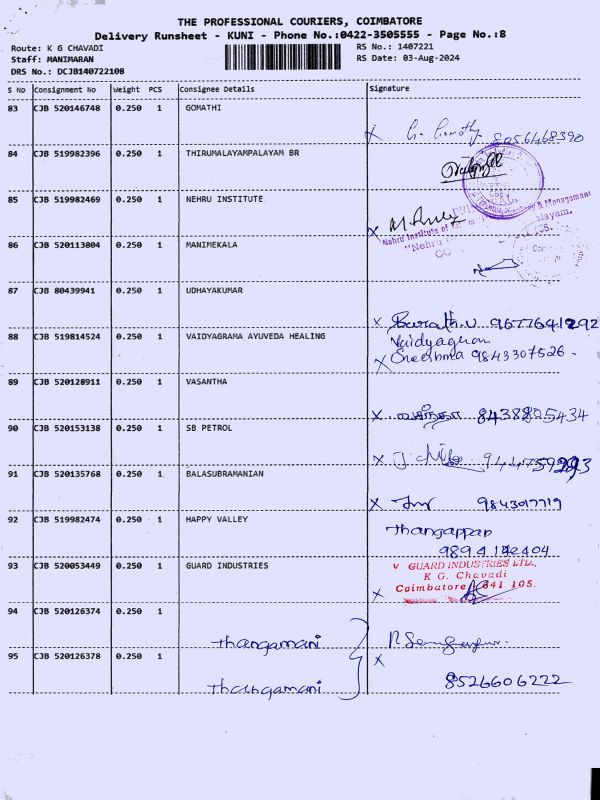 THE PROFESSIONAL COURIERS, COIMBATORE
Delivery Runsheet - KUNI - Phone No.:0422-3505555 - Page No.:8
Route: K G CHAVADI RS No.: 1407221
Staff: MANIMARAN RS Date: 03-Aug-2024
DRS No.: DCJB140722108
S No Consignment No Weight PCS Consignee Details Signature
83 CJB 520146748 0.250 1 GOMATHI
8056468390
84 CJB 519982396 0.250 1 THIRUMALAYAMPALAYAM BR
85 CJB 519982469 0.250 1 NEHRU INSTITUTE
Nehru Institute of
86 CJB 520113804 0.250 1 MANIMEKALA
87 CJB 80439941 0.250 1 UDHAYAKUMAR
x Barath.U 9677641292
88 CJB 519814524 0.250 1 VAIDYAGRAMA AYUVEDA HEALING
Vaidyagram
x Sreeshma 9843307526.
89 CJB 520128911 0.250 1 VASANTHA
x வசந்தா 8438805434
90 CJB 520153138 0.250 1 SB PETROL
91 CJB 520135768 0.250 1 BALASUBRAMANIAN
x 9843017719
92 CJB 519982474 0.250 1 HAPPY VALLEY
Thangappan
9894142404
93 CJB 520053449 0.250 1 GUARD INDUSTRIES
GUARD INDUSTRIES LTD.,
K G. Chavadi
Coimbatore 641 105.
94 CJB 520126374 0.250 1
Thangamani
95 CJB 520126378 0.250 1
Thangamani 8526606222